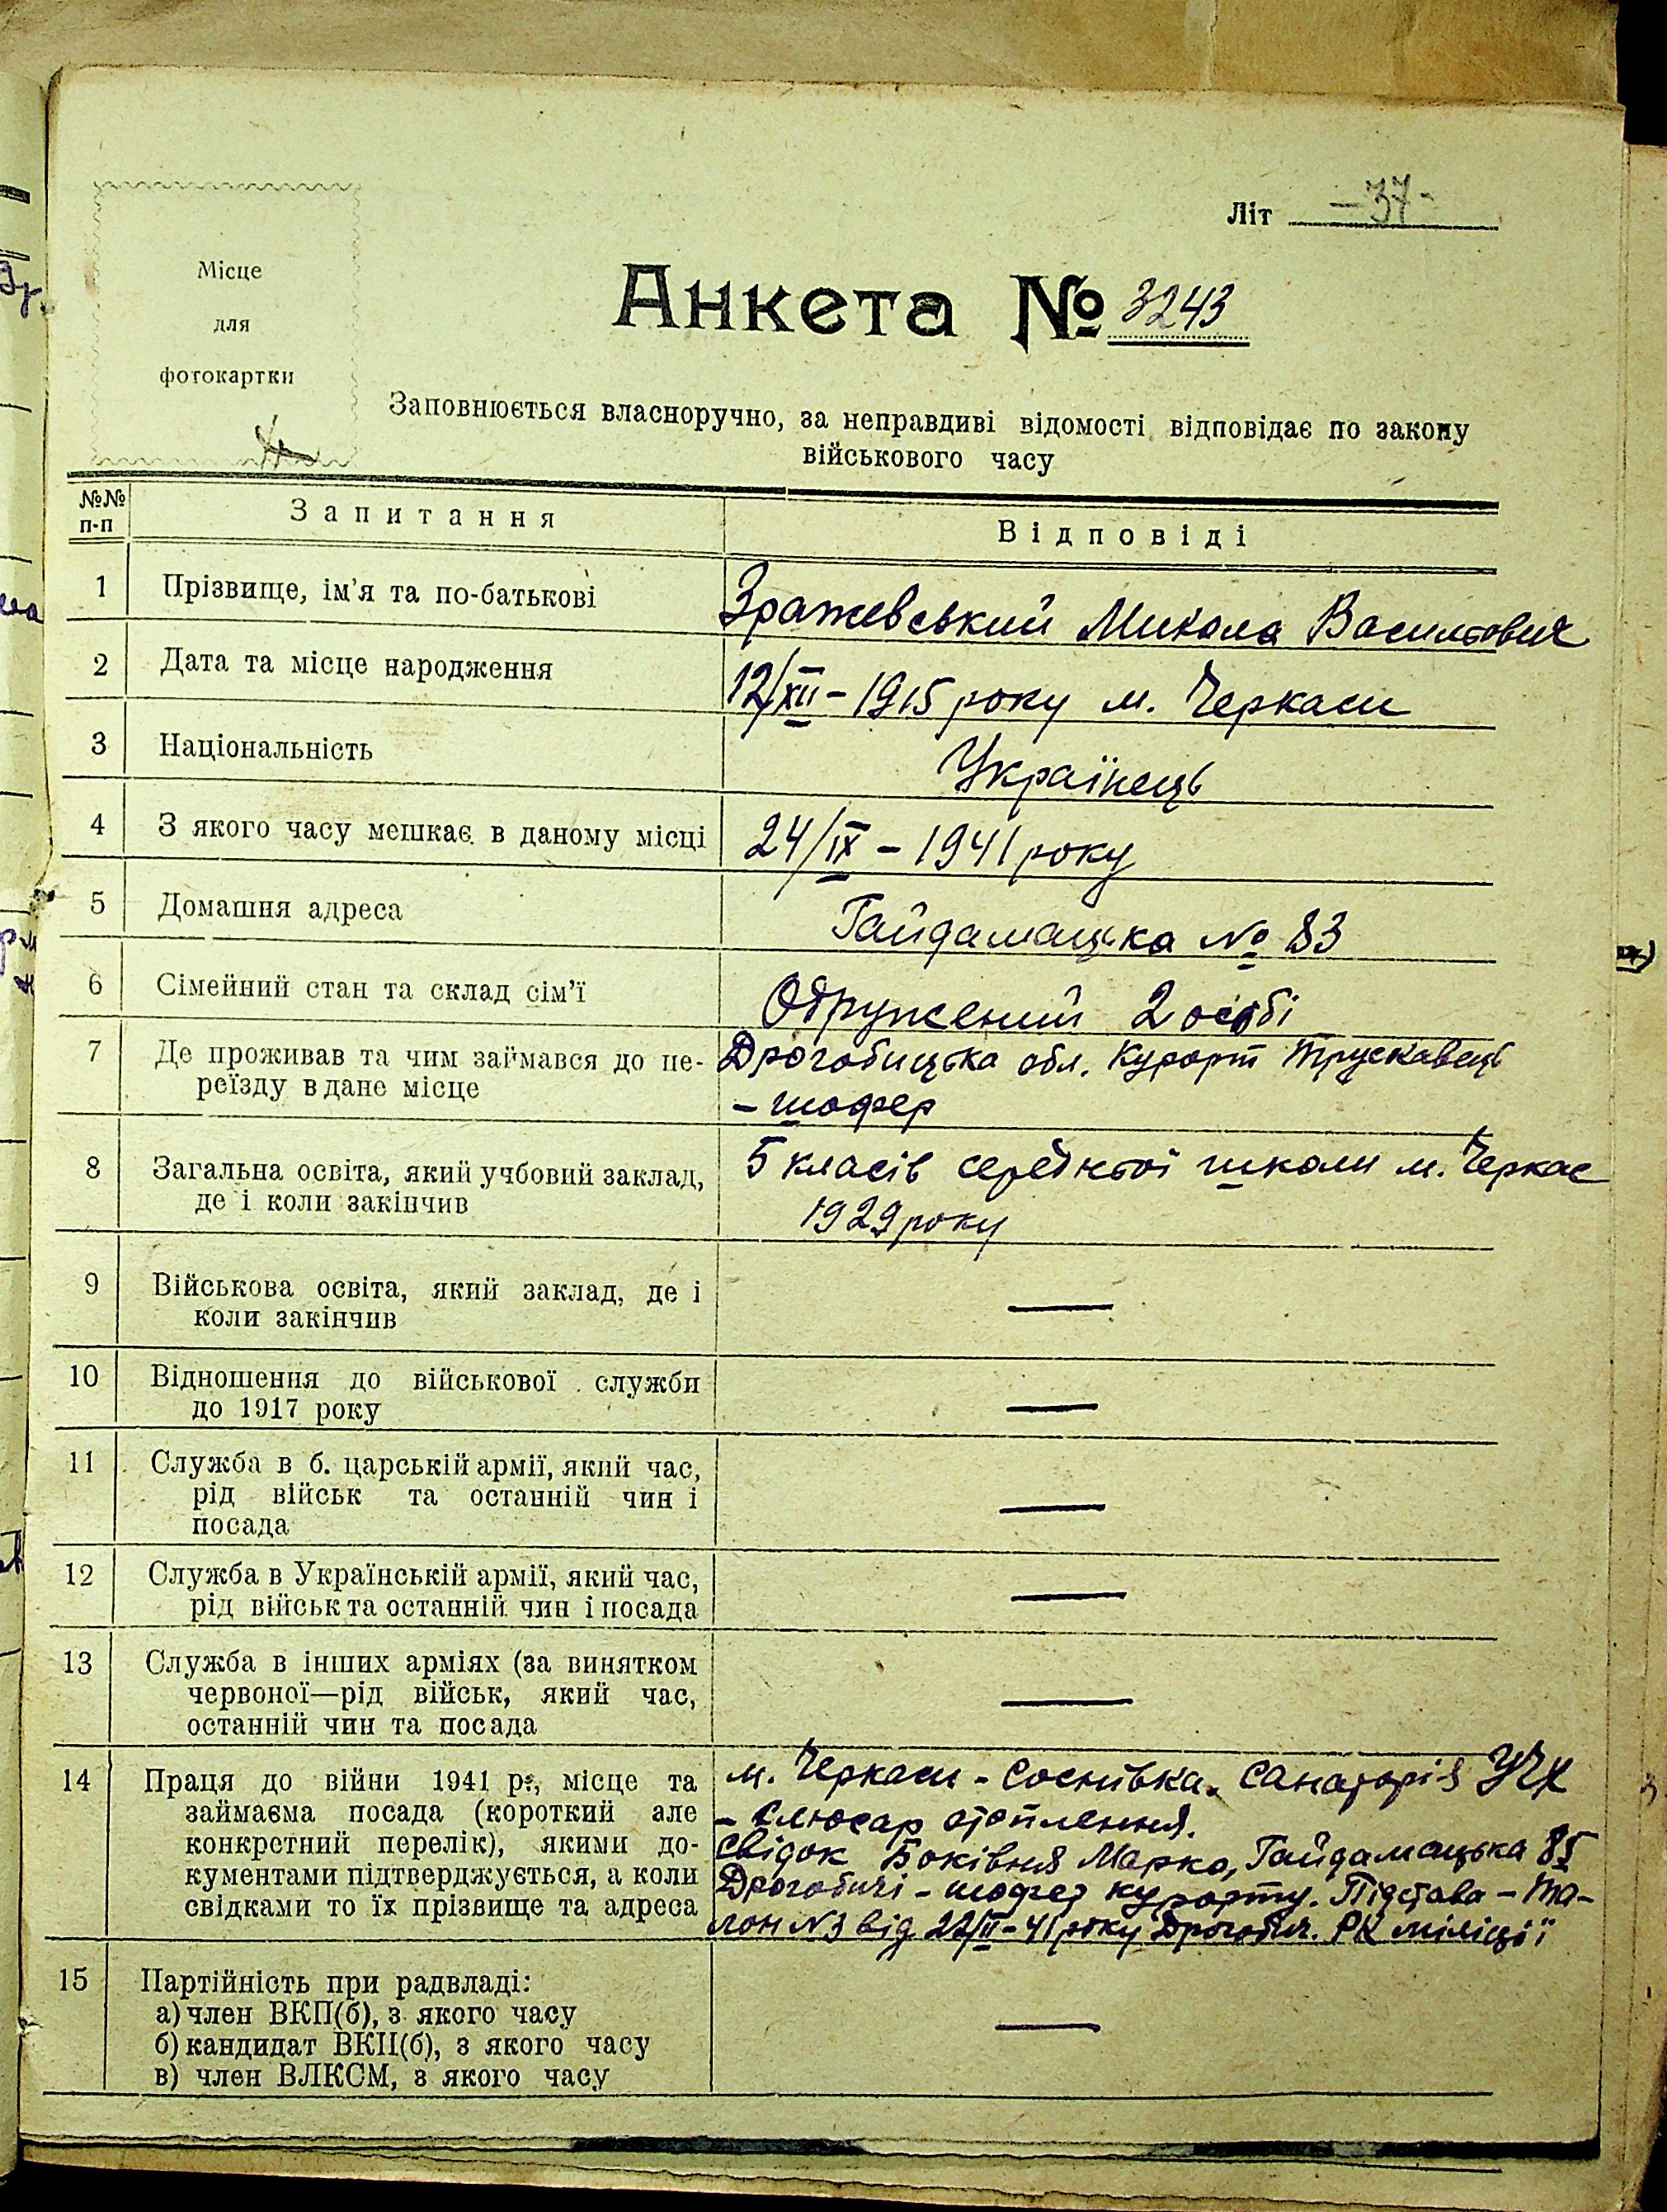 Літ -37-
Місце
для
фотокартки
Анкета № 3243
Заповнюється власноручно, за неправдиві відомості відповідає по закону
військового часу
№№ п-п Запитання Відповіді
1 Прізвище, ім'я та по-батькові Зражевський Микола Васильович
2 Дата та місце народження 12/XII - 1915 року м. Черкаси
3 Національність Українець
4 З якого часу мешкає в даному місці 24/IX - 1941 року
5 Домашня адреса Гайдамацька № 83
6 Сімейний стан та склад сім'ї Одружений 2 особі
7 Де проживав та чим займався до пе- Дрогобицька обл. Курорт Трускавець
реїзду в дане місце - шофер
8 Загальна освіта, який учбовий заклад, 5 класів середньої школи м. Черкас
де і коли закінчив 1929 року
9 Військова освіта, який заклад, де і —
коли закінчив
10 Відношення до військової служби
до 1917 року —
11 Служба в б. царській армії, який час,
рід військ та останній чин і —
посада
12 Служба в Українській армії, який час,
рід військ та останній чин і посада —
13 Служба в інших арміях (за винятком
червоної—рід військ, який час, —
останній чин та посада
14 Праця до війни 1941 р., місце та м. Черкаси - Соснівка. Санаторія УЧХ
займаєма посада (короткий але - Слюсар отоплення.
конкретний перелік), якими до- Свідок Боківня Марко, Гайдамацька 85
кументами підтверджується, а коли Дрогобичі - шофер курорту. Підстава - та-
свідками то їх прізвище та адреса лон №3 від 22/II - 41 року Дрогобич. РК міліції
15 Партійність при радвладі:
а) член ВКП(б), з якого часу
б) кандидат ВКП(б), з якого часу —
в) член ВЛКСМ, з якого часу